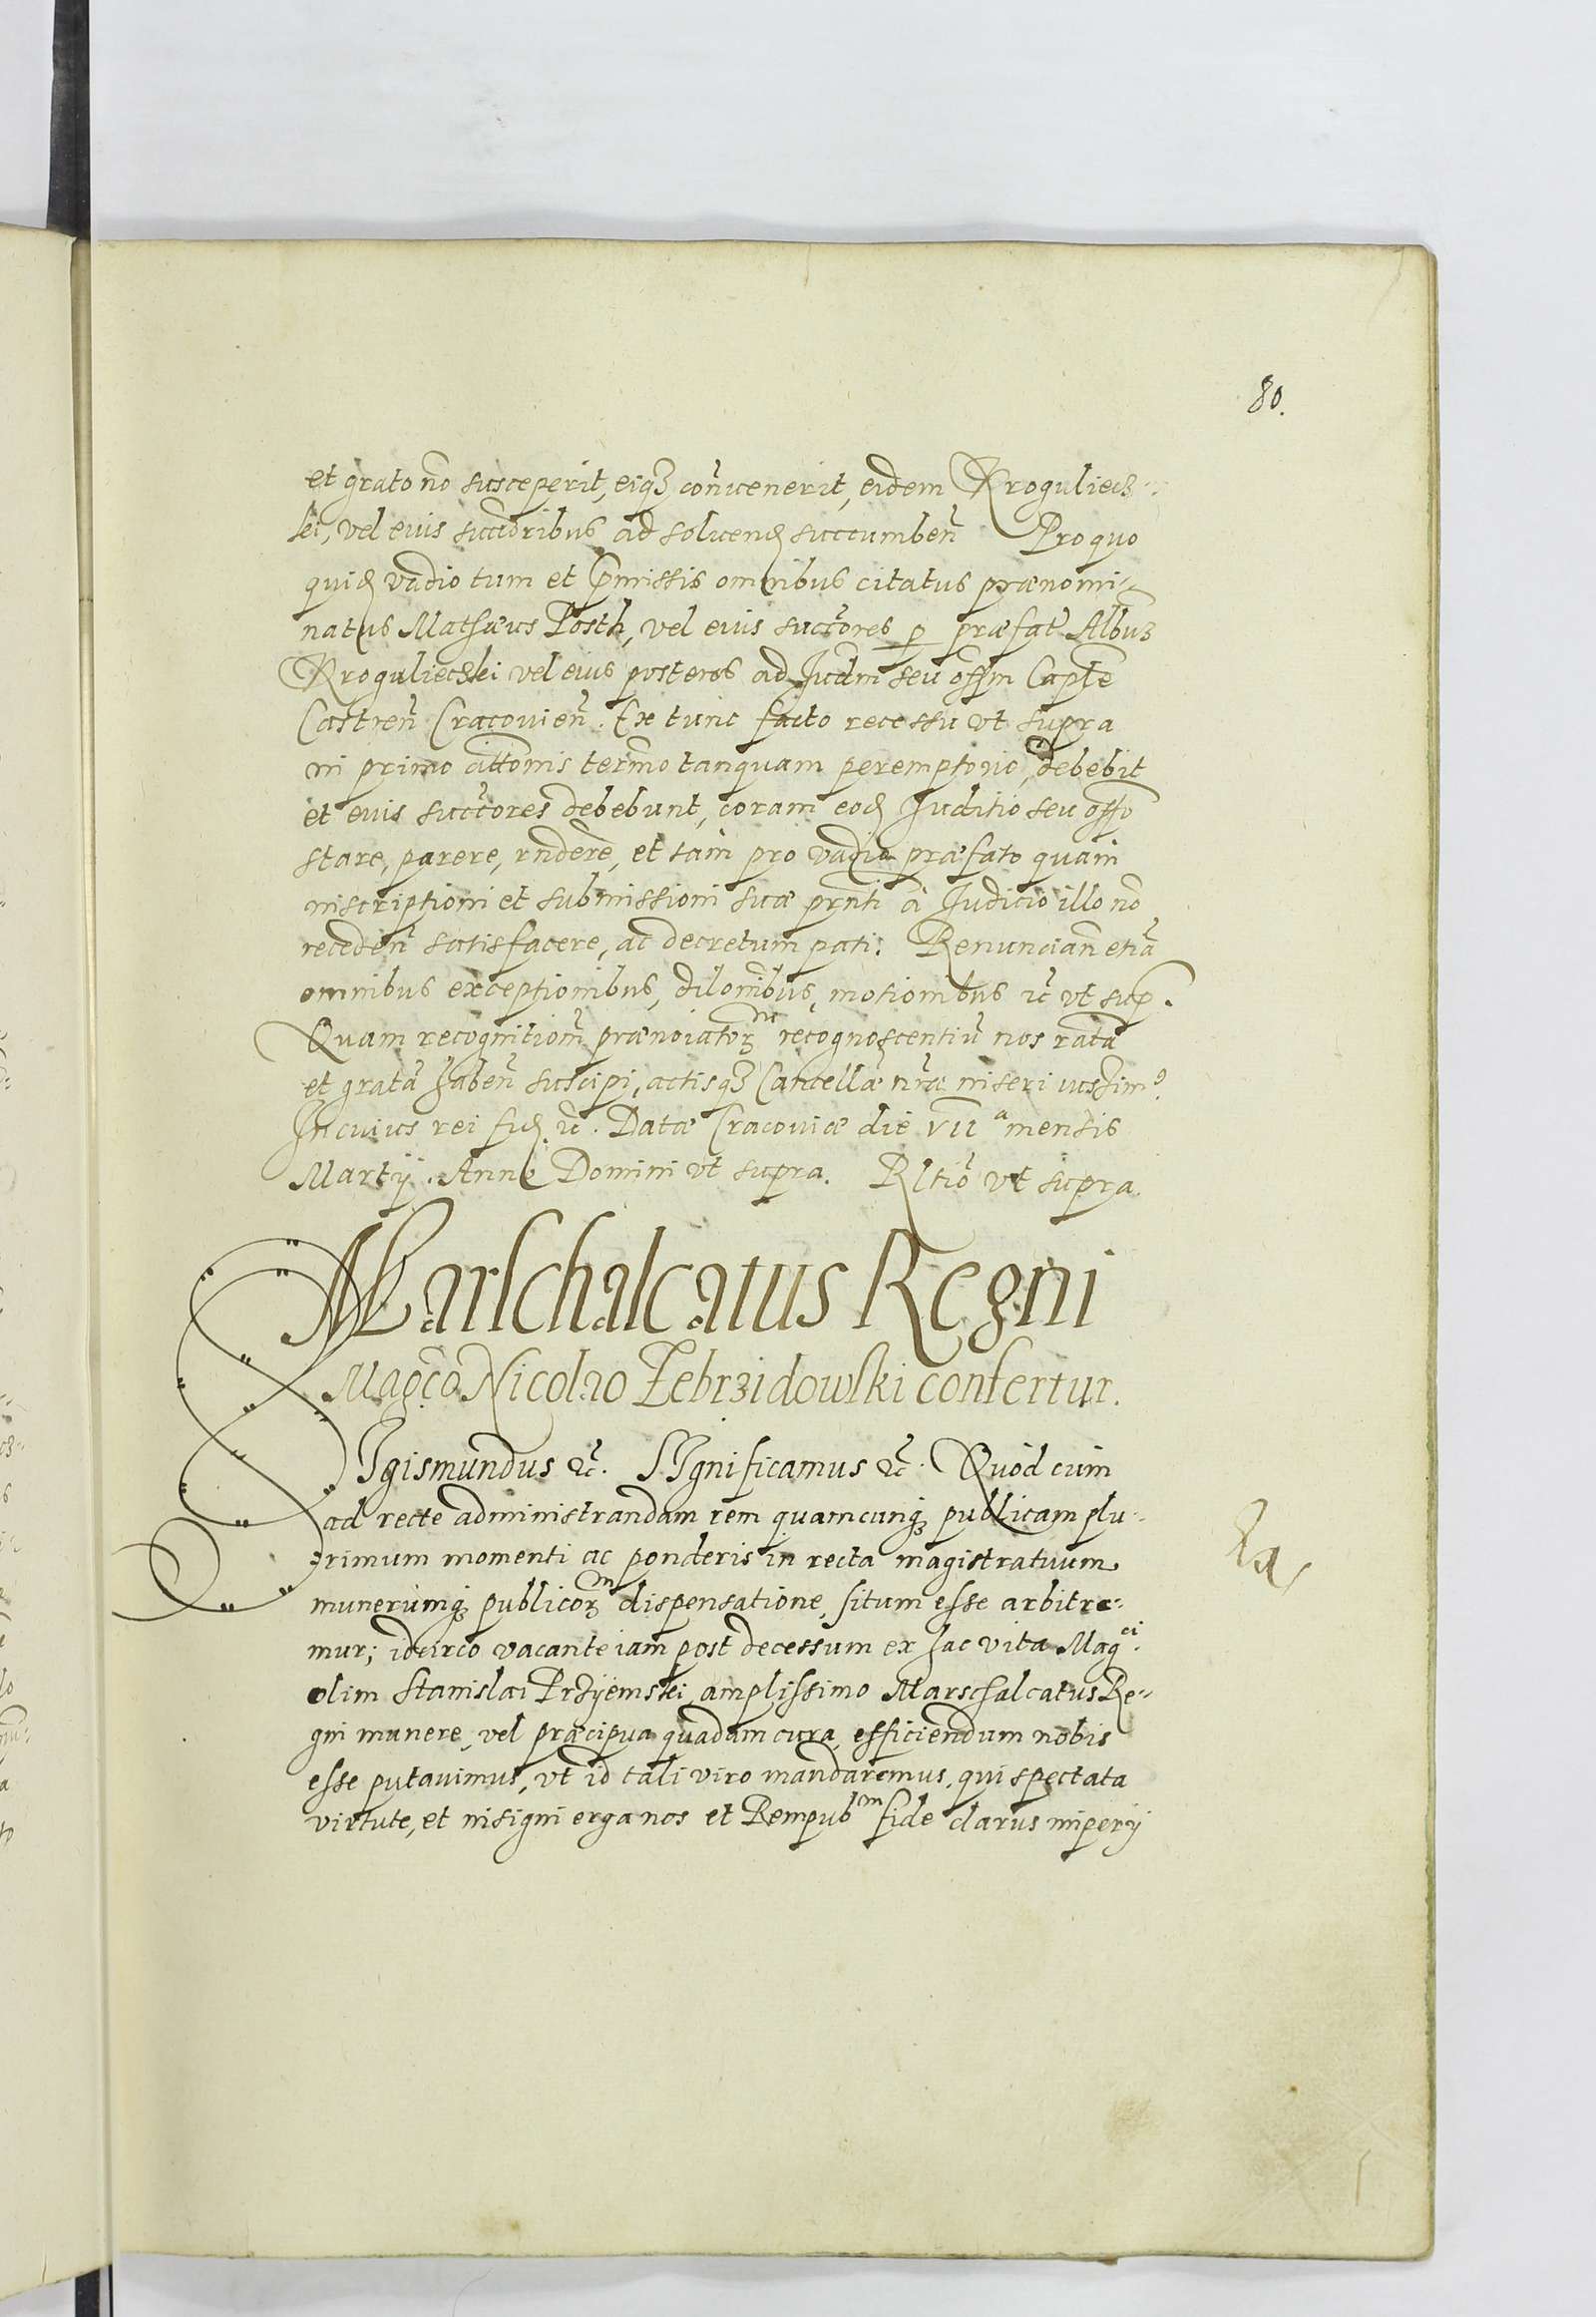 80.
et grato nō susceperit, eiqꝫ conuenerit, eidem Kroguliecz-
ki, vel eius succoribus ad soluend succumben̄ Pro quo
quid vadio tum et p̄missis omnibus citatus prænomi-
natus Mathæus Posth, vel eius succōres p præfat Albūz
Krogulieczki vel eius posteros ad Judm seu offm Captē
Castren̄ Cracouien̄. Ex tunc facto recessu vt supra
in primo cittōnis termō tanquam peremptorio, debebit
et eius succōres debebunt, coram eod Juditio seu offō
stare, parere, rnderē, et tam pro vadio præfato quam
inscriptioni et submissioni suæ prn̄ti à Judicio illo nō
receden̄ satisfacere, ac decretum pati. Renuncian̄ etiā
omnibus exceptionibus, dilōnibus, motionibus ꝛc̄ vt sup.
Quam recognitionē prænoiatoꝝ recognoscentiū nos ratā
et gratā haben̄ suscipi, actisqꝫ Cancellæ nr̄æ inseri iussimꝰ.
In cuius rei fid ꝛc̄. Datæ Cracouiæ die VII a mensis
Martij. Anno Domini vt supra. Rltiō vt supra.
Marschalcatus Regni
Magco Nicolao Zebrzidowski confertur.
SIgismundus ꝛc̄. SIgnificamus ꝛc̄. Quod cum
ad recte administrandam rem quamcunqꝫ publicam plu-
rimum momenti ac ponderis in recta magistratuum
munerumqꝫ publicoꝝ dispensatione, situm esse arbitre-
mur; idcirco vacante iam post decessum ex hac vita Magci
olim Stanislai Przyemski, amplissimo Marschalcatus Re-
gni munere, vel præcipua quadam cura, efficiendum nobis
esse putauimus, vt id tali viro mandaremus, qui spectata
virtute, et insigni erga nos et Rempubm fide clarus imperij